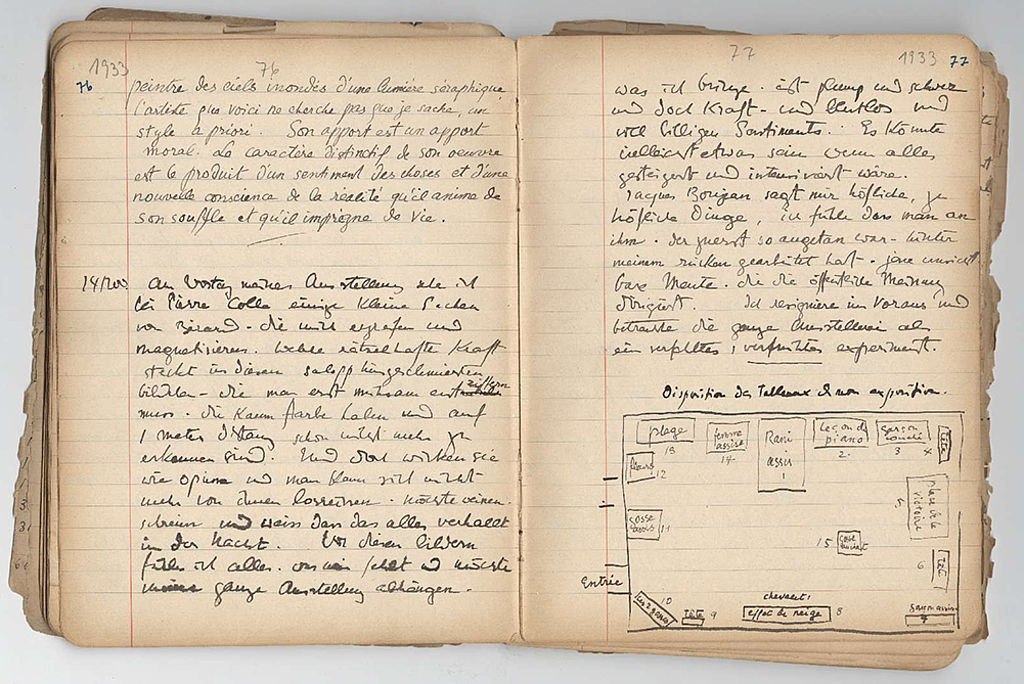 1933
76
76
peintre des ciels inondés d'une lumière séraphique
l'artiste que voici ne cherche pas que je sache, un
style a priori. Son apport est un apport
moral. Le caractère distinctif de son oeuvre
est le produit d'un sentiment des choses et d'une
nouvelle conscience de la réalité qu'il anime de
son souffle et qu'il imprègne de vie.
Am Vortag meiner Ausstellung sehe ich
bei Pierre Colle einige kleine Sachen
von Bérard - die mich ergreifen und
magnetisieren. Welche rätselhafte Kraft
steckt in diesen salopp hingeschmierten
Bildchen - die man erst mühsam entziffern
muss. die kaum Farbe haben und auf
1 meter Distanz schon nicht mehr zu
erkennen sind. Und doch wirken sie
wie Opium und man kann sich nicht
mehr von ihnen losreissen. möchte weinen.
schreien und weiss dass das alles verhallt
in der Nacht. Vor diesen Bildern
fühle ich alles. was mir fehlt und möchte
meine ganze Ausstellung abhängen.
77
1933 77
was ich bringe. ist plump und schwer
und doch Kraft- und blutlos und
voll billigen Sentiments. Es könnte
vielleicht etwas sein wenn alles
gesteigert und intensiviert wäre.
Jacques Bonjean sagt mir höfliche, zu
höfliche Dinge, ich fühle dass man an
ihm. der zuerst so angetan war - hinter
meinem rücken gearbeitet hat - jene unsicht
bare Meute. die die öffentliche Meinung
dirigiert. Ich resigniere im Voraus und
betrachte die ganze Ausstellerei als
ein verfehltes, verfrühtes experiment.
Disposition des Tableaux de mon exposition.
plage
13
femme
assise
14
assis
1
Leçon de
piano
2
garçon
couché
3
tête
4
fleurs
12
place de la
victoire
5
gosse
assis
11
15
gosse
tête
6
Entrée
10
tête
9
chevalet:
effet de neige
8
garçon assis
7